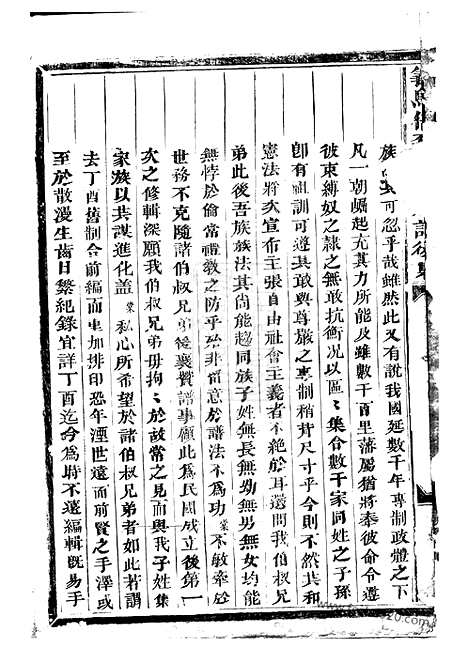 族 可忽乎哉雖然此又有說我國延數千年專制政體之下
凡一朝崛起充其力所能及雖數千百里藩屬猶將奉彼命令遵
彼束縛奴之隸之無敢抗衡况以區〻集合數千家同姓之子孫
卽有祖訓可遵其敢與尊嚴之專制稍背尺寸乎今則不然共和
憲法將次宣布主張自由社會主義者不絶於耳還問我伯叔兄
弟此後吾族族法其尚能趨同族子姓無長無幼無男無女均能
無悖於倫常禮教之防乎殆非當意於譜法不為功業不敏牽於
世務不克隨諸伯叔兄弟後襄贊譜事顧此為民國成立後第一
次之修輯深願我伯叔兄弟毋拘〻於故常之見而與我子姓集
家族以共謀進化蓋業私心所希望於諸伯叔兄弟者如此若謂
去丁酉舊制合前編而更加排印恐年湮世遠而前賢之手澤或
至於散漫生齒日繁紀錄宜詳丁酉迄今為時不遠編輯既易手